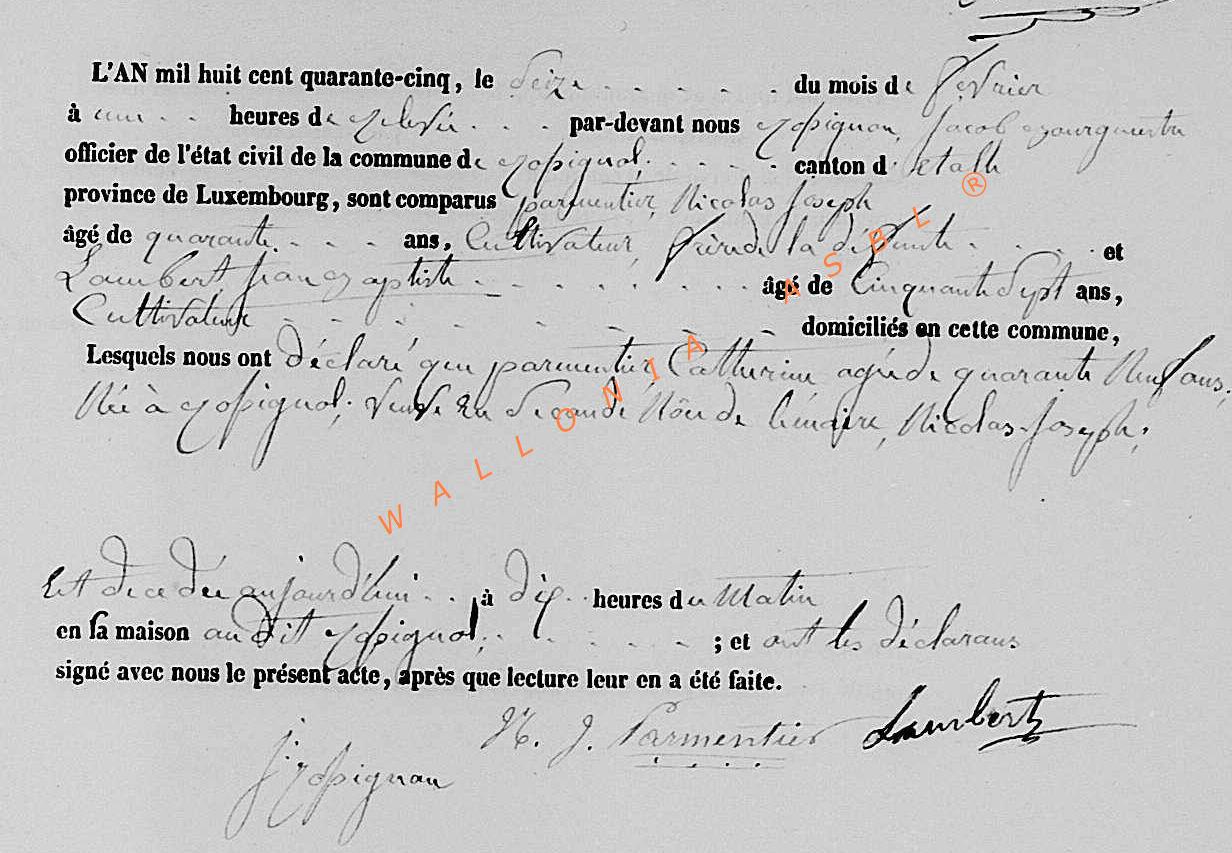 L'AN mil huit cent quarante-cinq, le Seize . . . . . du mois de fevrier
à une . . heures de Relevée . . . par-devant nous Rossignon, Jacob Bourgmestre
officier de l'état civil de la commune de Rossignol, . . . . . canton d'Etalle
province de Luxembourg, sont comparus parmentier, Nicolas Joseph
âgé de quarante . . . . ans, Cultivateur, frere de la défunte . . . . et
Lambert Jean Baptiste . . . . . . . . . âgé de Cinquante Sept ans,
Cultivateur . . . . . . . . domiciliés en cette commune,
Lesquels nous ont déclaré que parmentier, Catherine agée de quarante Neuf ans,
Née à Rossignol, veuve En Seconde Nôce de Lémaire, Nicolas-Joseph,
Est decedée aujourd'hui . . , à dix . . heures du Matin
en sa maison audit Rossignol, . . . . . . ; et ont les déclarans
signé avec nous le présent acte, après que lecture leur en a été faite.
N. J. Parmentier Lambert
J Rossignon
WALLONIA ASBL ®